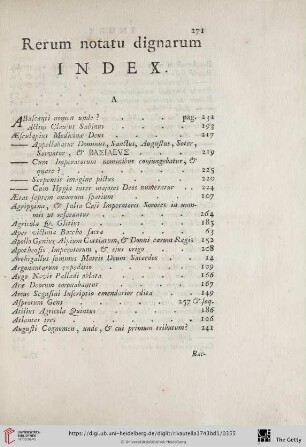 271
Rerum notatu dignarum
INDEX.
A
ABascanti
unde? pag. 131
Attius Clausus Sabinus 193
Æsculapius Medicinæ Deus 217
— Appellabatur Dominus, Sanctus, Augustus, Soter,
Servator, & ΒΑΣΙΛΕΥΣ 219
— Cum Imperatorum nominibus conjungebatur, &
quare? 225
— Serpentis imagine pictus 220
— Cum Hygia inter majores Deos numeratur 224
Ætas septem annorum spatium 107
Agrippina, & Julia Caji Imperatoris Sorores in num-
mis ut
264
Agricola Q. Glitius 183
Aper victima Baccho sacra 63
Apollo Genius Alpium Cottiarum, & Donni earum Regis 152
Apotheosis Imperatorum, & ejus origo 208
Archigallus summus Matris Deum Sacerdos 14
Argonautarum expeditio 109
Argo Navis Palladi oblata 166
Aræ Deorum coronabantur 167
Arcus Segusini Inscriptio emendatior edita 149
Alsietorum Gens 257 & seq.
Atilius Agricola Quintus 186
Atlantes tres 106
Augusti Cognomen, unde, & cui primum tributum? 241
Bac-
https://digi.ub.uni-heidelberg.de/diglit/rivautella1743bd1/0355
© Universitätsbibliothek Heidelberg
The Getty